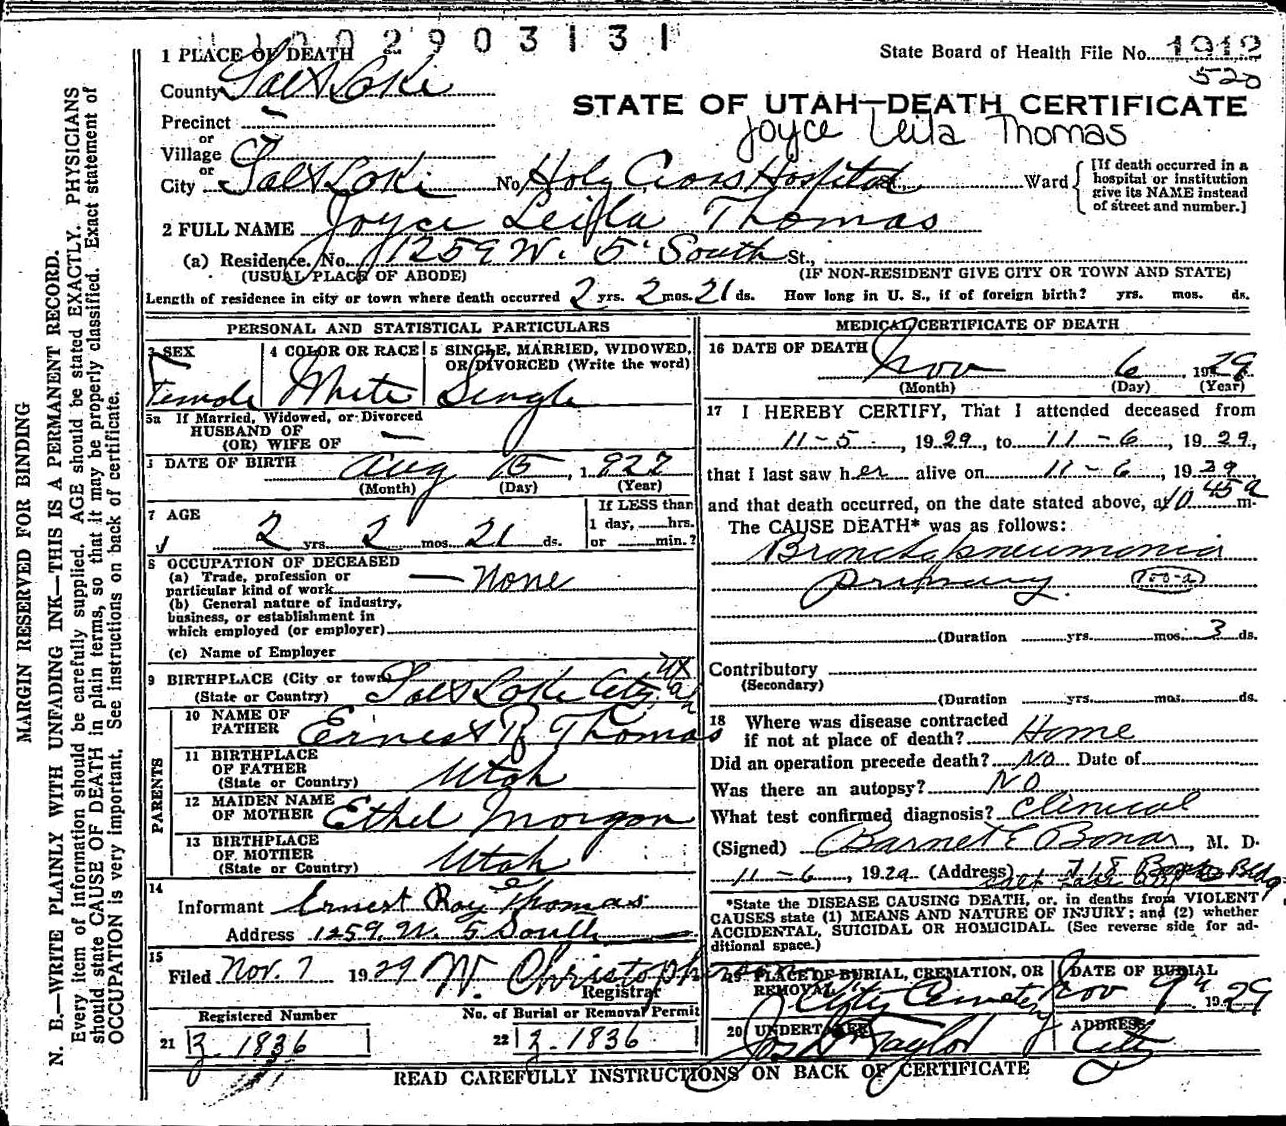 1002903131
1 PLACE OF DEATH
State Board of Health File No. 1912
520
County Salt Lake
STATE OF UTAH—DEATH CERTIFICATE
Joyce Leila Thomas
Precinct —
or
Village
or
City Salt Lake No. Holy Cross Hospital Ward
[If death occurred in a
hospital or institution
give its NAME instead
of street and number.]
2 FULL NAME Joyce Leila Thomas
(a) Residence. No. 1259 W. 5 South St.,
(USUAL PLACE OF ABODE) (IF NON-RESIDENT GIVE CITY OR TOWN AND STATE)
Length of residence in city or town where death occurred 2 yrs. 2 mos. 21 ds. How long in U. S., if of foreign birth? yrs. mos. ds.
PERSONAL AND STATISTICAL PARTICULARS
3 SEX
Female
4 COLOR OR RACE
White
5 SINGLE, MARRIED, WIDOWED,
OR DIVORCED (Write the word)
Single
5a If Married, Widowed, or Divorced
HUSBAND OF
(OR) WIFE OF —
DATE OF BIRTH Aug 15, 1927
(Month) (Day) (Year)
7 AGE
2 yrs. 2 mos. 21 ds.
If LESS than
1 day, hrs.
or min.?
8 OCCUPATION OF DECEASED
(a) Trade, profession or
particular kind of work — None
(b) General nature of industry,
business, or establishment in
which employed (or employer)
(c) Name of Employer
9 BIRTHPLACE (City or town)
(State or Country) Salt Lake City, Utah
PARENTS
10 NAME OF
FATHER Ernest R Thomas
11 BIRTHPLACE
OF FATHER
(State or Country) Utah
12 MAIDEN NAME
OF MOTHER Ethel Morgan
13 BIRTHPLACE
OF MOTHER
(State or Country) Utah
14
Informant Ernest Roy Thomas
Address 1259 W. 5 South
15
Filed Nov. 7 1929 W. Christopherson
Registrar
Registered Number
21 3. 1836
No. of Burial or Removal Permit
22 3. 1836
MEDICAL CERTIFICATE OF DEATH
16 DATE OF DEATH
Nov 6 1929
(Month) (Day) (Year)
17 I HEREBY CERTIFY, That I attended deceased from
11-5, 1929, to 11-6, 1929,
that I last saw her alive on 11-6, 1929
and that death occurred, on the date stated above, at 10 45a m.
The CAUSE DEATH* was as follows:
Bronchopneumonia
primary. 100-a
(Duration yrs. mos. 3 ds.
Contributory
(Secondary)
(Duration yrs. mos. ds.
18 Where was disease contracted
if not at place of death? Home
Did an operation precede death? No Date of
Was there an autopsy? NO
What test confirmed diagnosis? Clinical
(Signed) Barnet E Bonar, M. D.
11-6, 1929 (Address) 718 Boston Bldg
Salt Lake City
*State the DISEASE CAUSING DEATH, or, in deaths from VIOLENT
CAUSES state (1) MEANS AND NATURE OF INJURY; and (2) whether
ACCIDENTAL, SUICIDAL OR HOMICIDAL. (See reverse side for ad-
ditional space.)
19 PLACE OF BURIAL, CREMATION, OR
REMOVAL
City Cemetery
DATE OF BURIAL
Nov 9th 1929
20 UNDERTAKER
Jos Wm Taylor
ADDRESS
City
READ CAREFULLY INSTRUCTIONS ON BACK OF CERTIFICATE
MARGIN RESERVED FOR BINDING
N. B.—WRITE PLAINLY WITH UNFADING INK—THIS IS A PERMANENT RECORD.
Every item of information should be carefully supplied. AGE should be stated EXACTLY. PHYSICIANS
should state CAUSE OF DEATH in plain terms, so that it may be properly classified. Exact statement of
OCCUPATION is very important. See instructions on back of certificate.